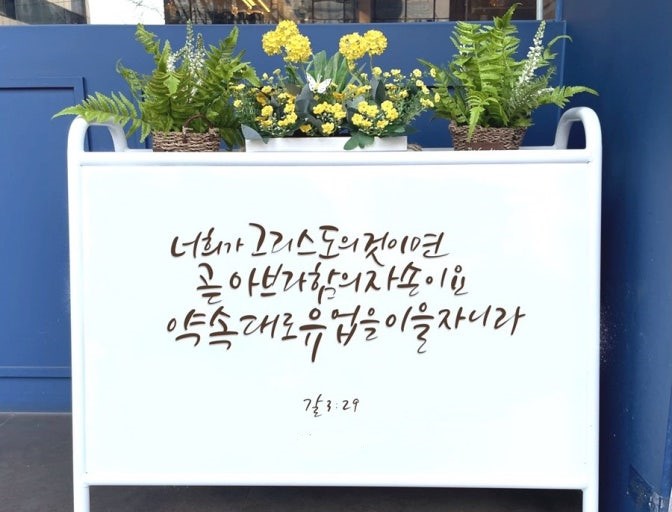 너희가 그리스도의 것이면
곧 아브라함의 자손이요
약속대로 유업을 이을 자니라
갈 3:29